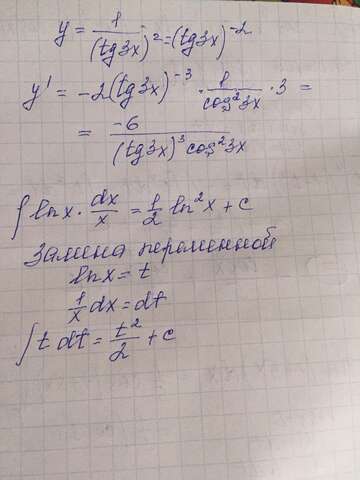 y = 1/(tg3x)² = (tg3x)⁻²
y' = -2(tg3x)⁻³ · 1/cos²3x · 3 =
= -6/((tg3x)³cos²3x)
∫ lnx · dx/x = 1/2 ln²x + c
Замена переменной
lnx = t
1/x dx = dt
∫ t dt = t²/2 + c